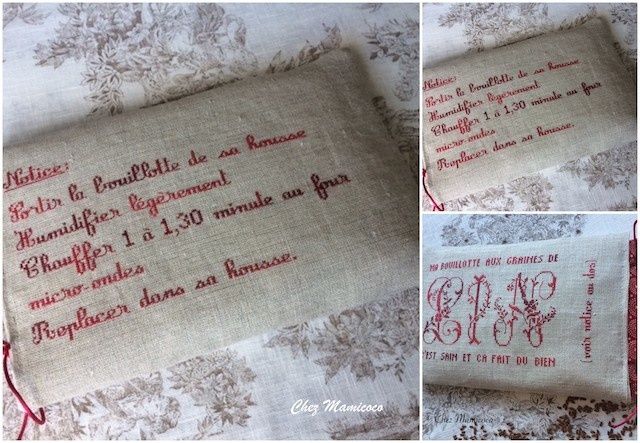 Notice:
Sortir la bouillotte de sa housse
Humidifier légèrement
Chauffer 1 à 1,30 minute au four
micro-ondes
Replacer dans sa housse.
Chez Mamicoco
Notice:
Sortir la bouillotte de sa housse
Humidifier légèrement
Chauffer 1 à 1,30 minute au four
micro-ondes
Replacer dans sa housse.
MA BOUILLOTTE AUX GRAINES DE
LIN
C'EST SAIN ET CA FAIT DU BIEN
(voir notice au dos)
Chez Mamicoco